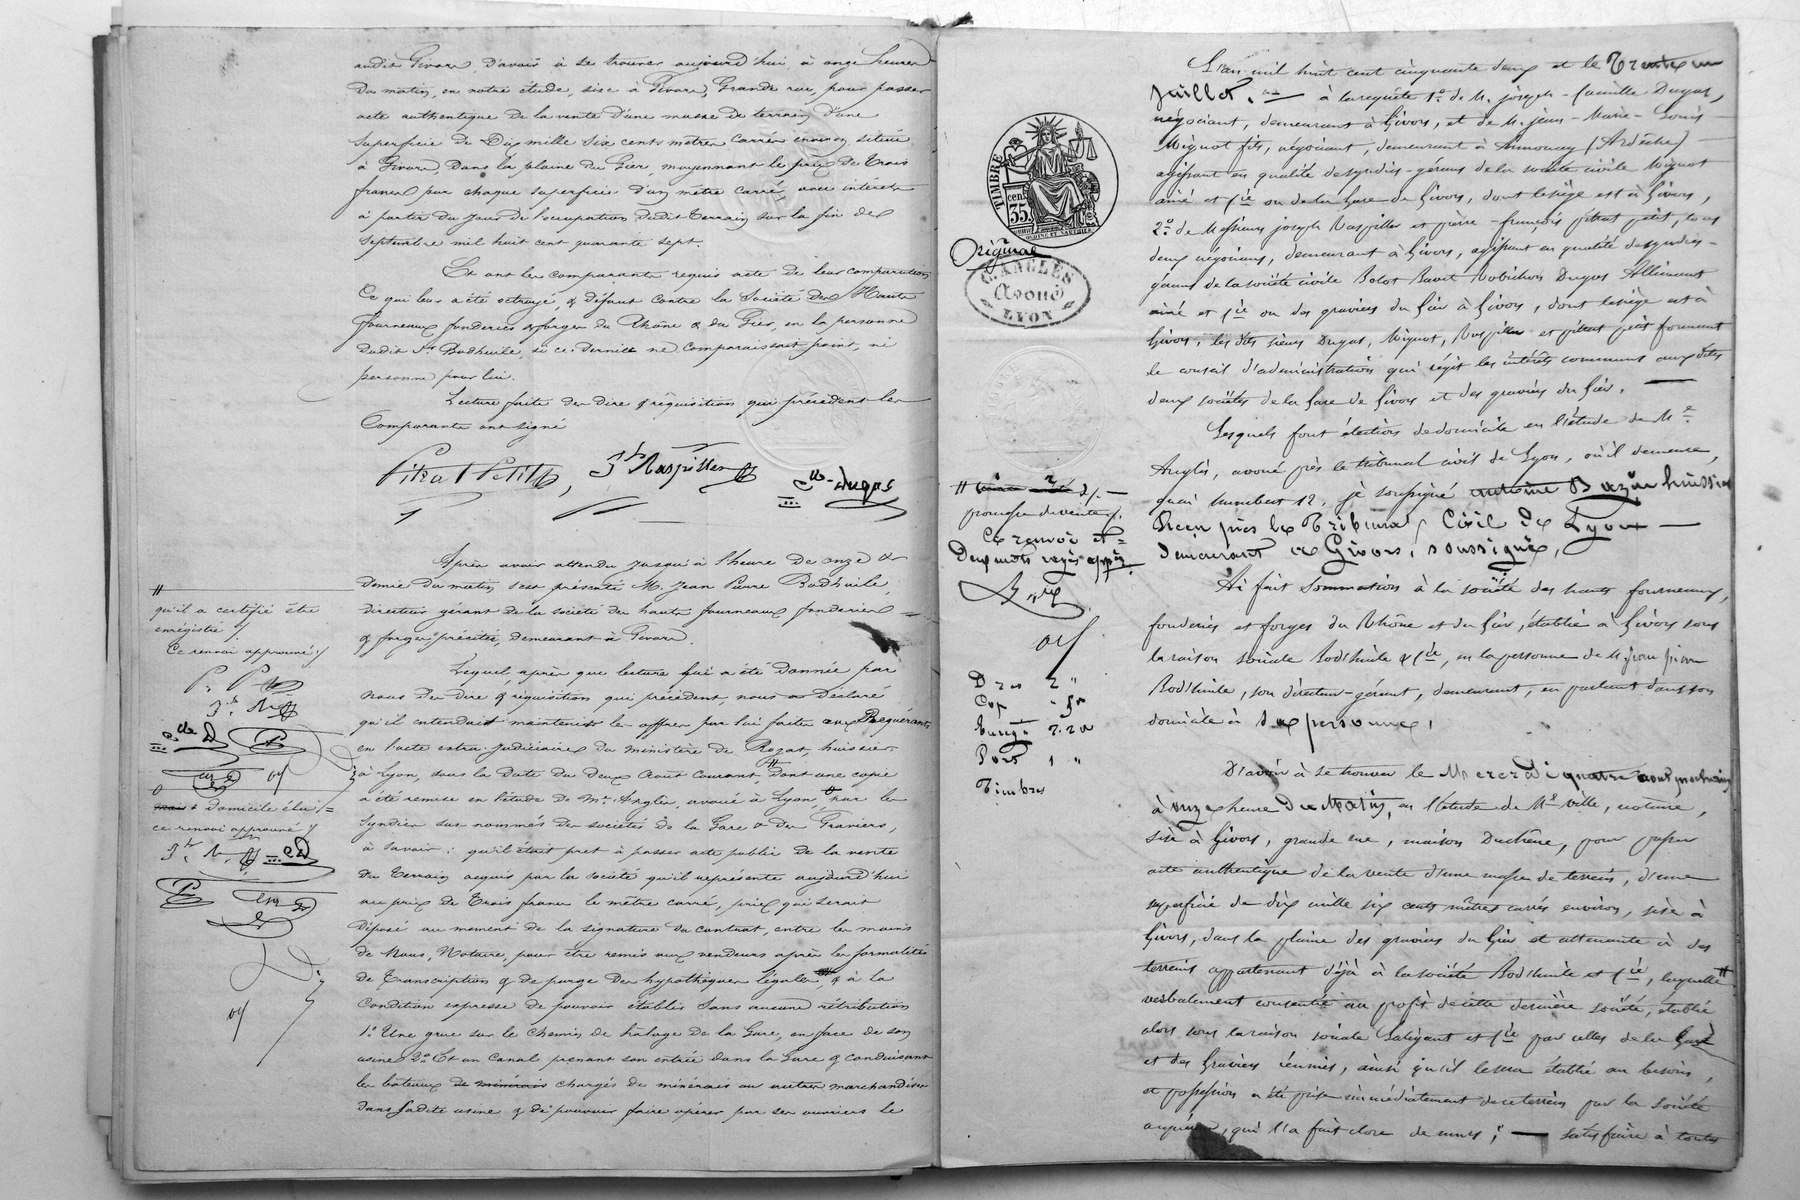 audit Givors, d'avoir à se trouver aujourd'hui, à onze heures
du matin, en notre étude, sise à Givors, Grande rue, pour passer
acte authentique de la vente d'une masse de terrain d'une
superficie de Dix mille six cents mètres carrés environ située
à Givors, dans la plaine du Gier, moyennant le prix de trois
francs par chaque superficie d'un mètre carré, avec intérêts
à partir du jour de l'occupation dudit terrain sur la fin de
septembre mil huit cent quarante sept.
Et ont les comparants requis acte de leur comparution
Ce qui leur a été octroyé, & défaut contre la Société des Hauts
fourneaux fonderies & forges du Rhône & du Gier, en la personne
dudit Sr Bodhuile, si ce dernier ne comparaissait point, ni
personne pour lui.
Lecture faite des dire & réquisition qui précèdent les
Comparants ont signé
Pitrat Petit, Jh Raspiller Clle Dugas
Après avoir attendu jusqu'à l'heure de onze &
demie du matin, s'est présenté M. Jean Pierre Bodhuile,
directeur gérant de la société des hauts fourneaux, fonderies
& forges précitée, demeurant à Givors.
Lequel, après que lecture lui a été donnée par
nous des dire & réquisition qui précèdent, nous a déclaré
qu'il entendait maintenir les offres par lui faites aux Requérants
en l'acte extra-judiciaire du ministère de Rozat, huissier
à Lyon, sous la date du deux Août courant, # dont une copie
a été remise en l'étude de Me Anglès, avoué à Lyon, par les
Syndics sus nommés des sociétés de la Gare & des Graviers,
à savoir : qu'il était prêt à passer acte public de la vente
du terrain acquis par la société qu'il représente aujourd'hui
au prix de trois francs le mètre carré, prix qui serait
déposé au moment de la signature du contrat, entre les mains
de Nous, Notaire, pour être remis aux vendeurs après les formalités
de transcription & de purge des hypothèques légales, & à la
condition expresse de pouvoir établir sans aucune rétribution
1o Une grue sur le chemin de halage de la Gare, en face de son
usine 2o Et un Canal prenant son entrée dans la Gare & conduisant
les bateaux de minérais chargés de minérais ou autres marchandises
dans ladite usine & de pouvoir faire opérer par ses ouvriers le
#
qu'il a certifié être
enregistré /
Ce renvoi approuvé /
domicile élu /
ce renvoi approuvé /
TIMBRE
35 cen.
Original
C. ANGLÈS
Avoué
LYON
#
promesse de vente
Ce renvoi et
Deux mots rayés app.
Drs 2 "
Cop - 50
Enregt 2.20
Port 1 "
Timbres
L'an mil huit cent cinquante deux et le Trente un
Juillet. — à la requête 1o de M. joseph-Camille Dugas,
négociant, demeurant à Givors, et de M. jean-Marie-Louis
Mignot fils, négociant, demeurant à Annonay (Ardèche)
agissant en qualité de syndics-gérans de la société civile Mignot
ainé et Cie ou de la Gare de Givors, dont le siège est à Givors,
2o de Messieurs joseph Raspiller et pierre-françois pitrat petit, tous
deux négocians, demeurant à Givors, agissant en qualité de syndics-
gérans de la société civile Bolot Bavet Robichon Dugas Allimant
ainé et Cie ou des graviers du Gier à Givors, dont le siège est à
Givors, les dits sieurs Dugas, Mignot, Raspiller et pitrat petit formant
le conseil d'administration qui régit les intérêts communs aux dites
deux sociétés de la Gare de Givors et des graviers du Gier. —
Lesquels font élection de domicile en l'étude de Me
Anglès, avoué près le tribunal civil de Lyon, où il demeure,
quai humbert 12. je soussigné antoine Bazin huissier
Reçu près le Tribunal Civil de Lyon —
demeurant à Givors, soussigné,
Ai fait Sommation à la société des hauts fourneaux,
fonderies et forges du Rhône et du Gier, établie à Givors sous
la raison sociale Bodhuile & Cie, en la personne de M. jean pierre
Bodhuile, son directeur-gérant, demeurant, en parlant dans son
domicile à sa personne,
D'avoir à se trouver le Mercredi quatre aout prochain
à onze heures du Matin, en l'étude de Me ville, notaire,
sise à Givors, grande rue, maison Duchêne, pour passer
acte authentique de la vente d'une masse de terrein, d'une
superficie de dix mille six cents mètres carrés environ, sise à
Givors, dans la plaine des graviers du Gier et attenante à des
terreins appartenant déjà à la société Bodhuile et Cie, laquelle #
verbalement consentie au profit de cette dernière société, établie
alors sous la raison sociale Latigant et Cie par celles de la Gare
et des Graviers réunies, ainsi qu'il le sera établi au besoin,
et possession a été prise immédiatement de ce terrein par la société
qui l'a fait clore de murs ; — satisfaire à toutes